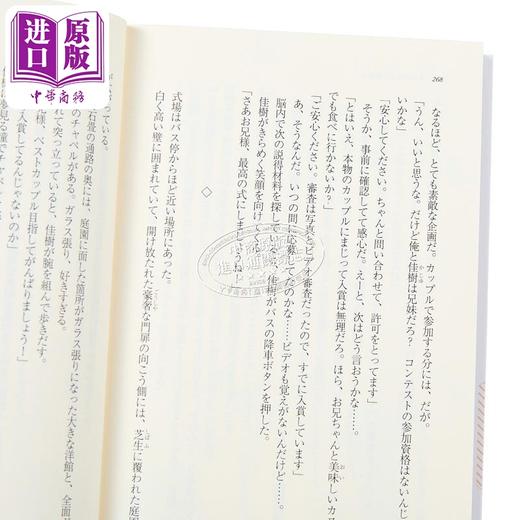 进口原版
中華商務
268
なるほど、とても素敵な企画だ。カップルで参加する分には、だが。
「うん、いいと思うな。だけど俺と佳樹は兄妹だろ? コンテストの参加資格はないんじ
いかな」
「安心してください。ちゃんと問い合わせて、許可をとってます」
そうか、事前に確認してて感心だ。えーと、次はどう言おうかな……。
「とはいえ、本物のカップルにまじって入賞は無理だろ。ほら、お兄ちゃんと美味しいカス
でも食べに行かないか?」
「ご安心ください。審査は写真とビデオ審査だったので、すでに入賞しています」
あ、そうなんだ。いつの間に応募してたのかな……ビデオも覚えがないんだけど……。
脳内で次の説得材料を探していると、佳樹がバスの降車ボタンを押した。
佳樹がきらめく笑顔を向けてくる。
「さあお兄様、最高の式にしましょうね」
◇
式場はバス停からほど近い場所にあった。
白く高い壁に囲まれていて、開け放たれた豪奢な門扉の向こう側には、芝生に覆われた庭園
っている。
石畳の通路の奥には、庭園に面した箇所がガラス張りになった大きな洋館と、全面
のチャペルがある。ガラス張り、好きすぎる。
れて突っ立っていると、佳樹が腕を組んで歩きだす。
兄様、ベストカップル目指してがんばりましょう!」
入賞してるんじゃないのか」